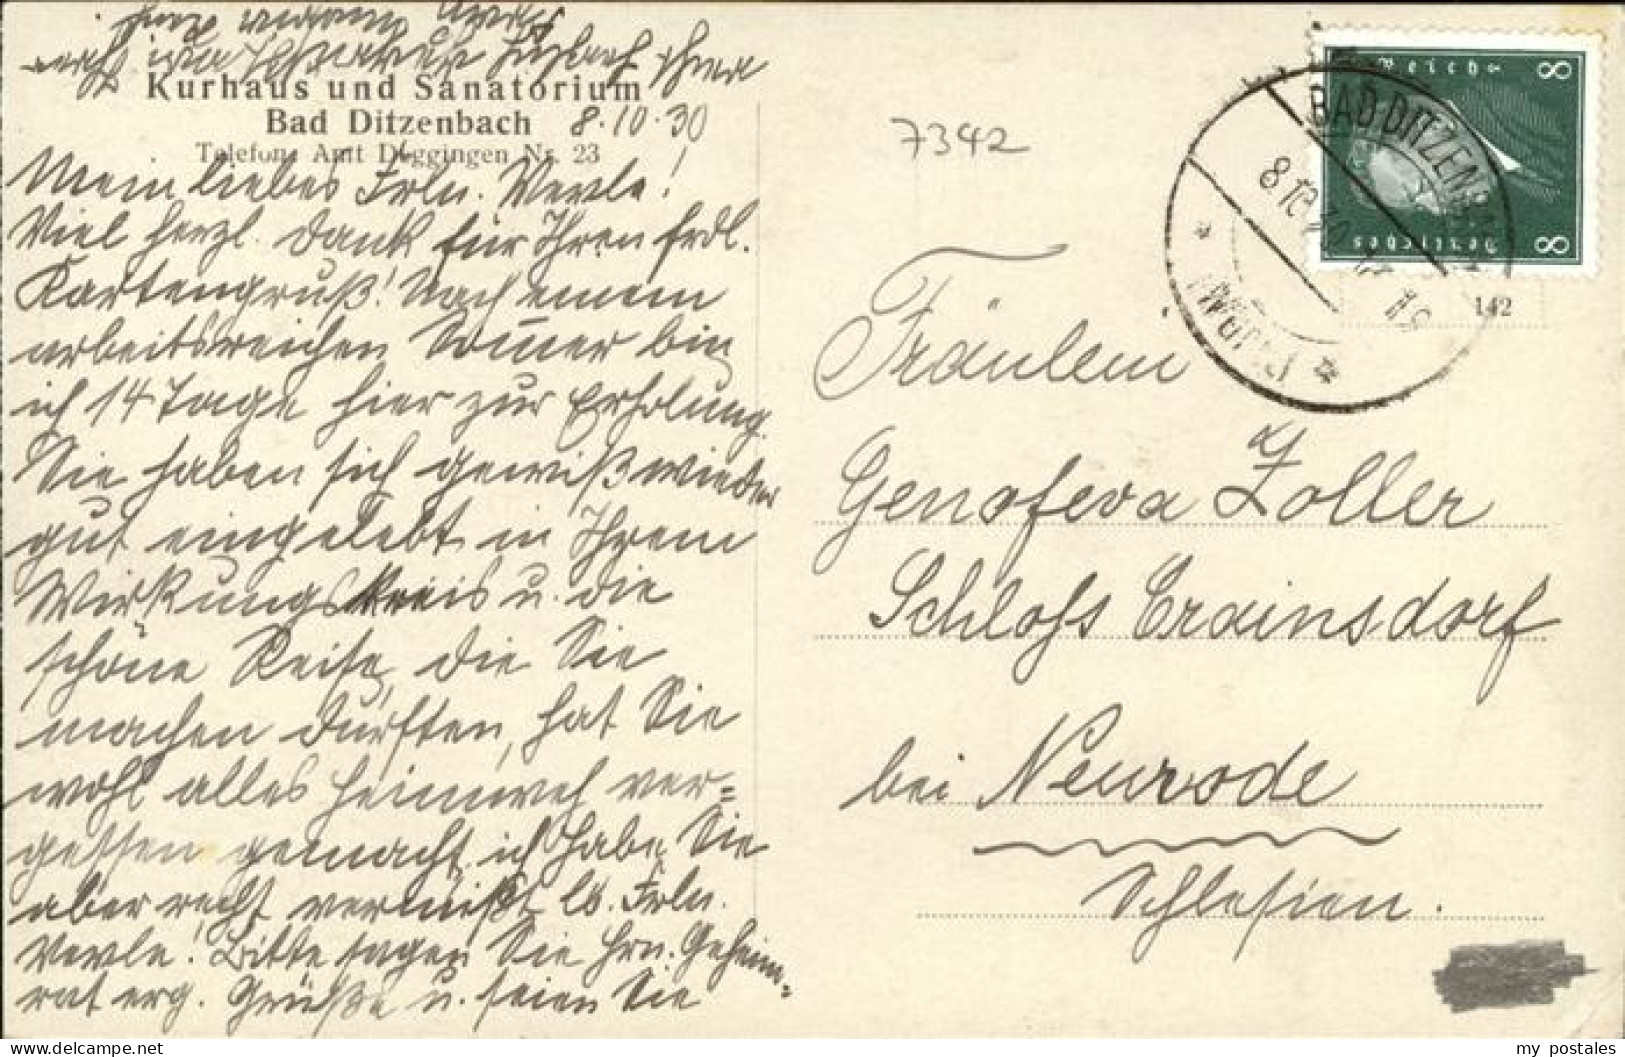 Kurhaus und Sanatorium
Bad Ditzenbach 8.10.30
Telefon: Amt Deggingen Nr. 23
Mein liebes Frln. Verle!
Viel herzl. Dank für Ihren frdl.
Kartengruß! Nach einem
arbeitsreichen Sommer bin
ich 14 Tage hier zur Erholung.
Sie haben sich gewiß wieder
gut eingelebt in Ihrem
Wirkungskreis u. die
schöne Reise, die Sie
machen durften, hat Sie
wohl alles Heimweh ver=
gessen gemacht, ich habe Sie
aber recht vermißt lb. Frln.
Verle! Bitte sagen Sie Hrn. Geheim=
rat erg. Grüße u. seien Sie
7342
Deutsches Reich
8
8
BAD DITZENBACH
8.10.30
(WÜRTT.)
142
Fräulein
Genofeva Zoller
Schloß Crainsdorf
bei Neurode
Schlesien.
my postales